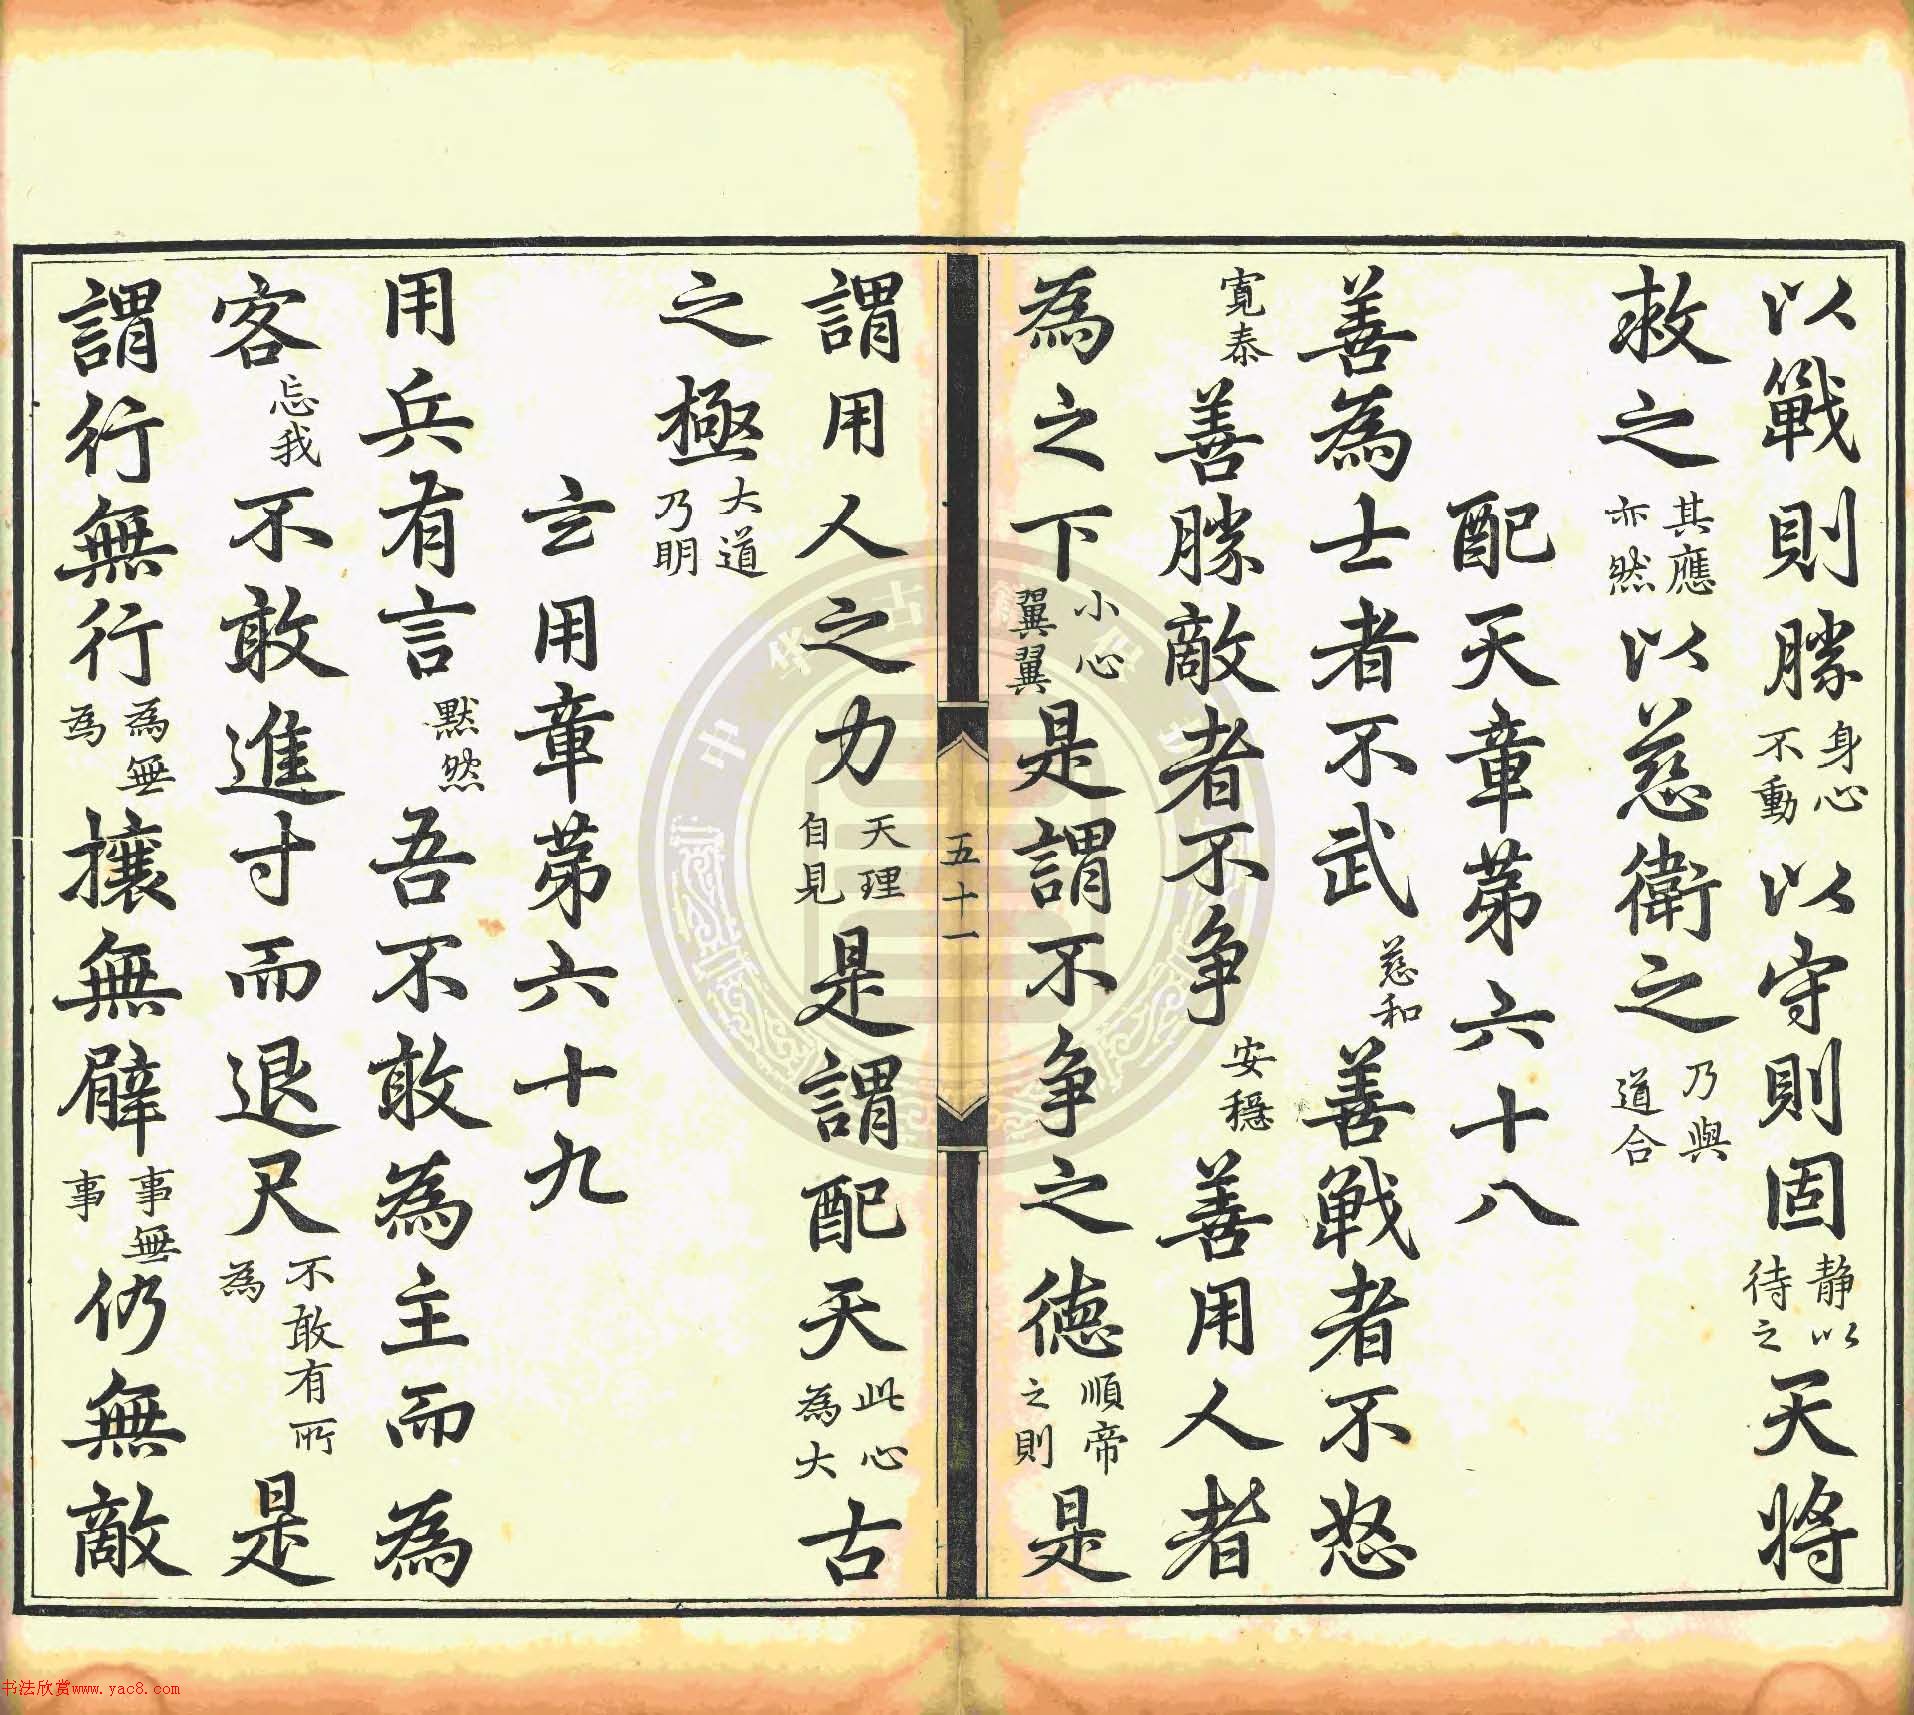 以戰則勝身心不動以守則固静以待之天將
救之其應亦然以慈衛之乃與道合
配天章第六十八
善為士者不武慈和善戰者不怒
寬泰善勝敵者不争安穏善用人者
為之下小心翼翼是謂不争之德順帝之則是
五十一
謂用人之力天理自見是謂配天此心為大古
之極大道乃明
玄用章第六十九
用兵有言默然吾不敢為主而為
客忘我不敢進寸而退尺不敢有所為是
謂行無行為無為攘無臂事無事仍無敵
书法欣赏www.yac8.com